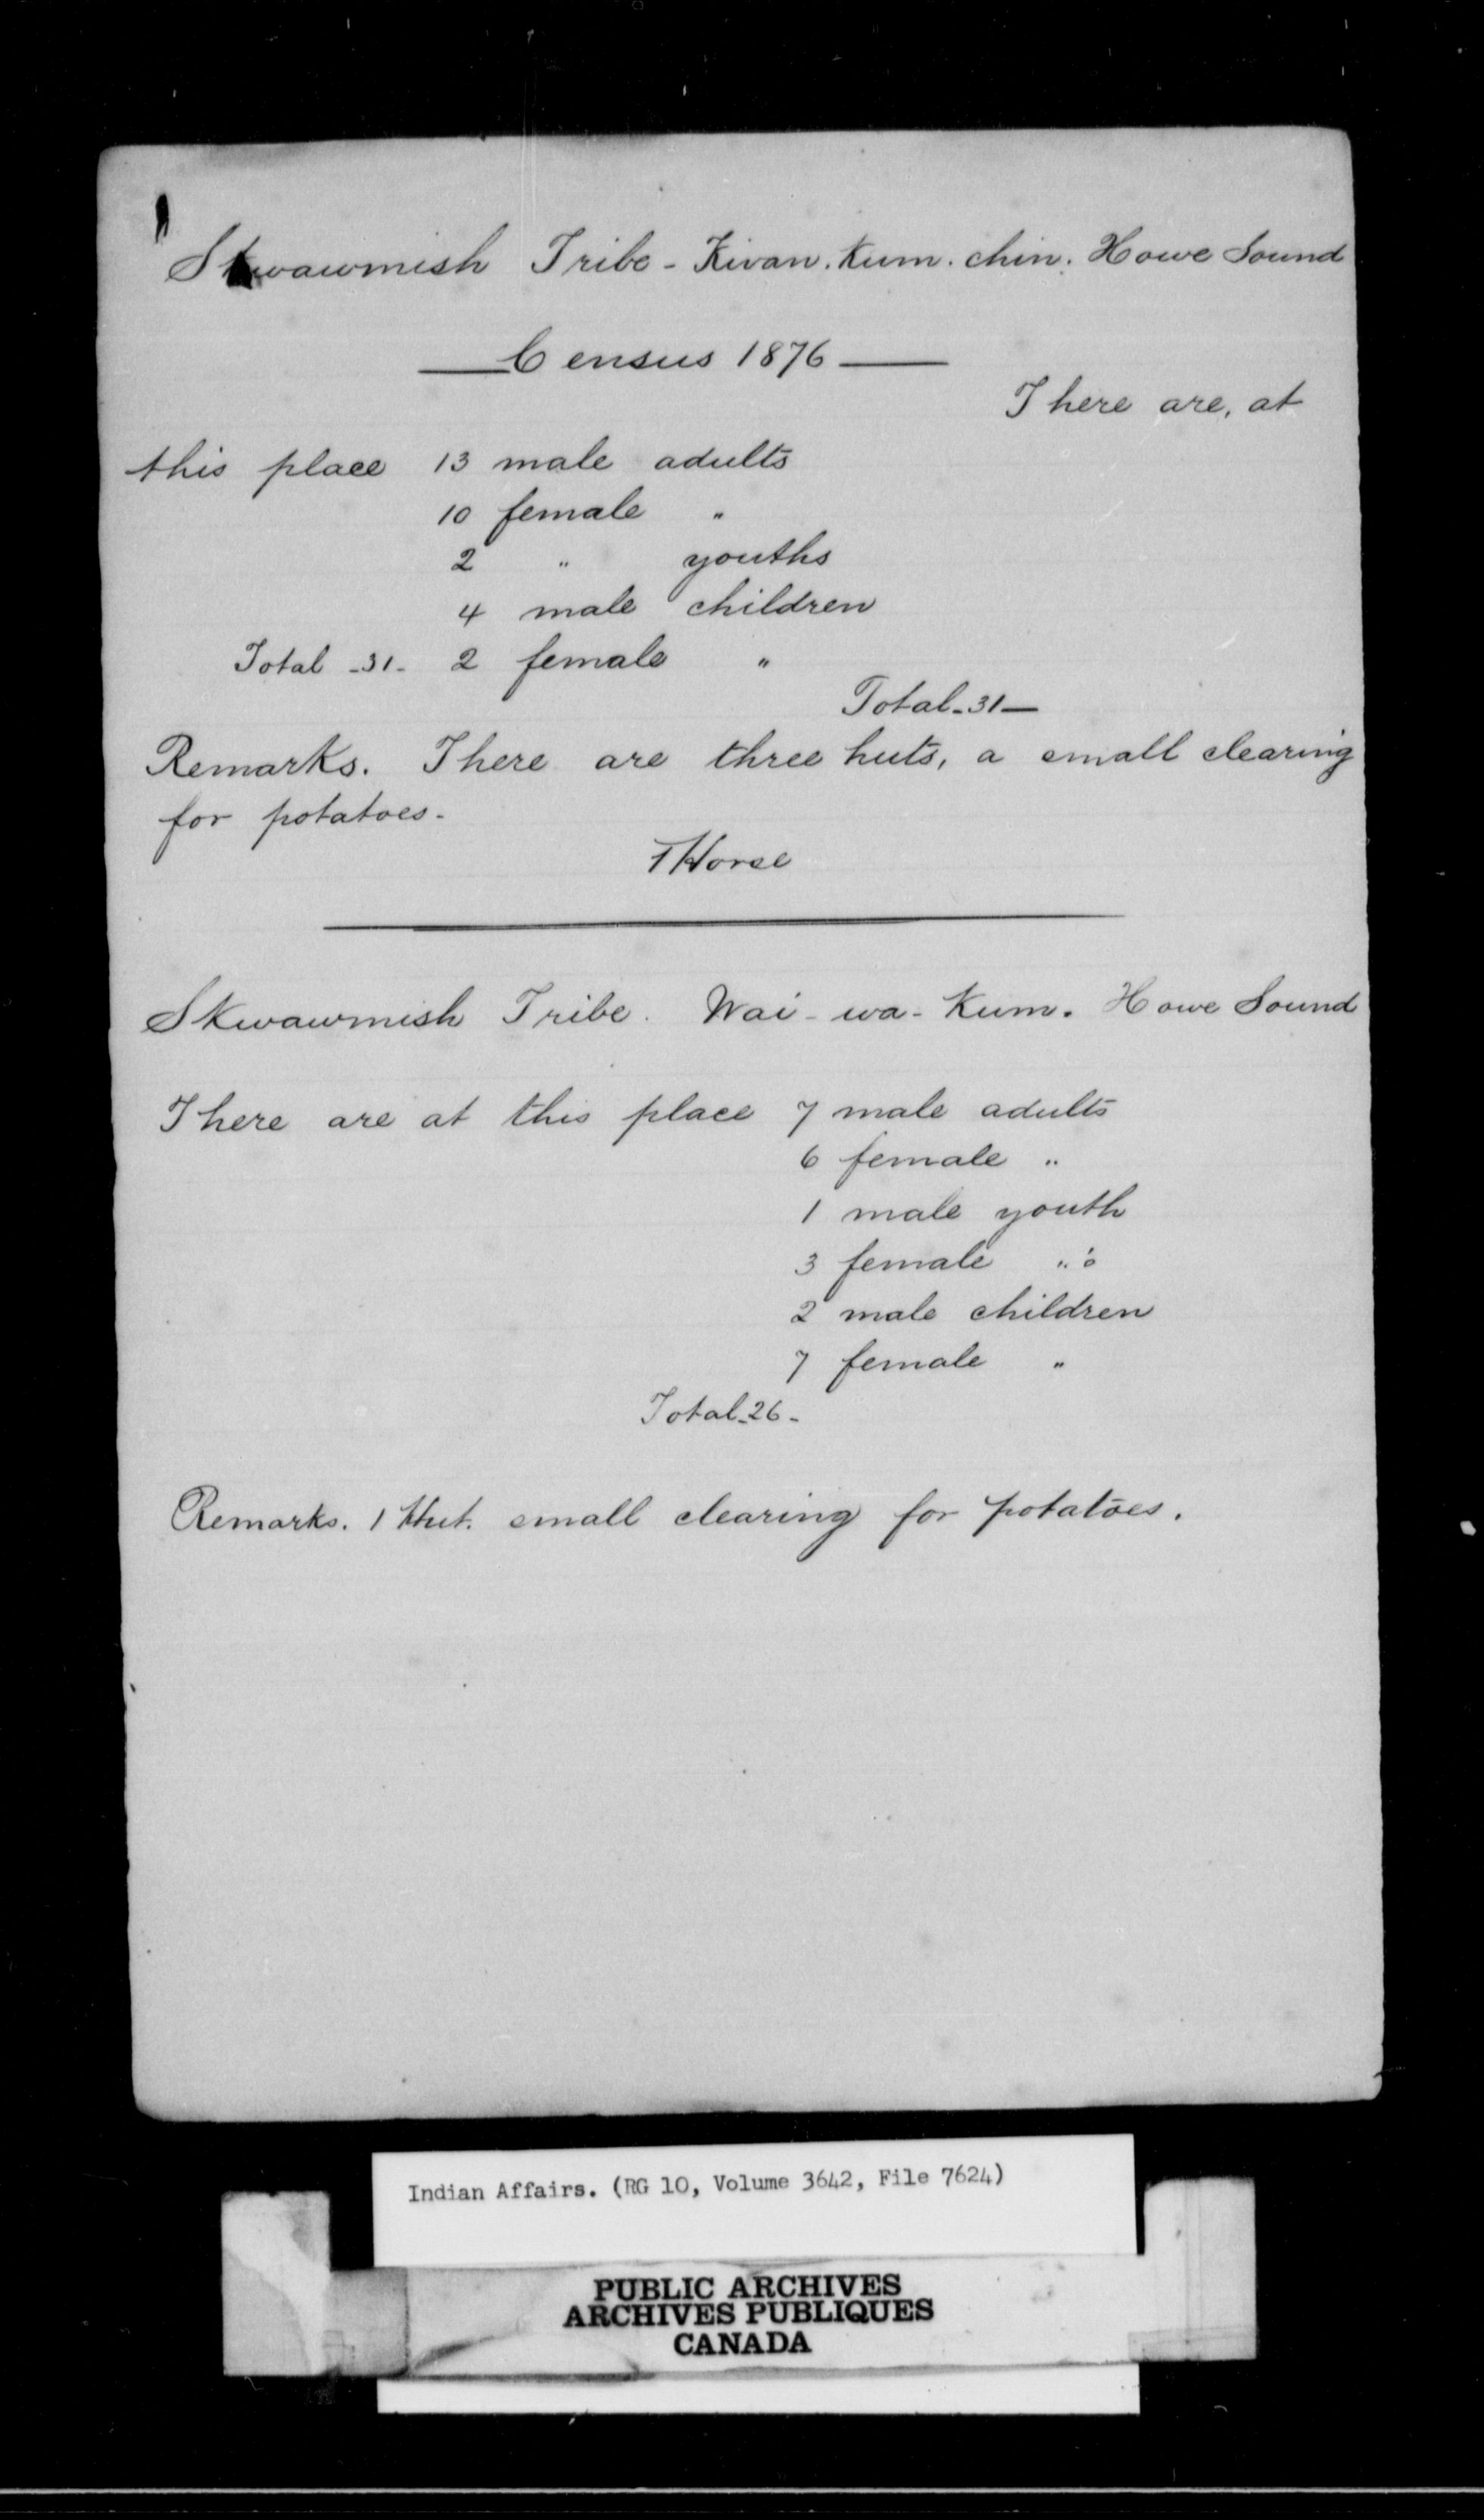 Skwawmish Tribe - Kwan. Kum. chin. Howe Sound
Census 1876
There are, at
this place 13 male adults
10 female "
2 " youths
4 male children
Total -31- 2 female "
Total -31-
Remarks. There are three huts, a small clearing
for potatoes.
1 Horse
Skwawmish Tribe. Wai-wa-Kum. Howe Sound
There are at this place 7 male adults
6 female "
1 male youth
3 female " s
2 male children
7 female "
Total -26-
Remarks. 1 Hut. small clearing for potatoes.
Indian Affairs. (RG 10, Volume 3642, File 7624)
PUBLIC ARCHIVES
ARCHIVES PUBLIQUES
CANADA